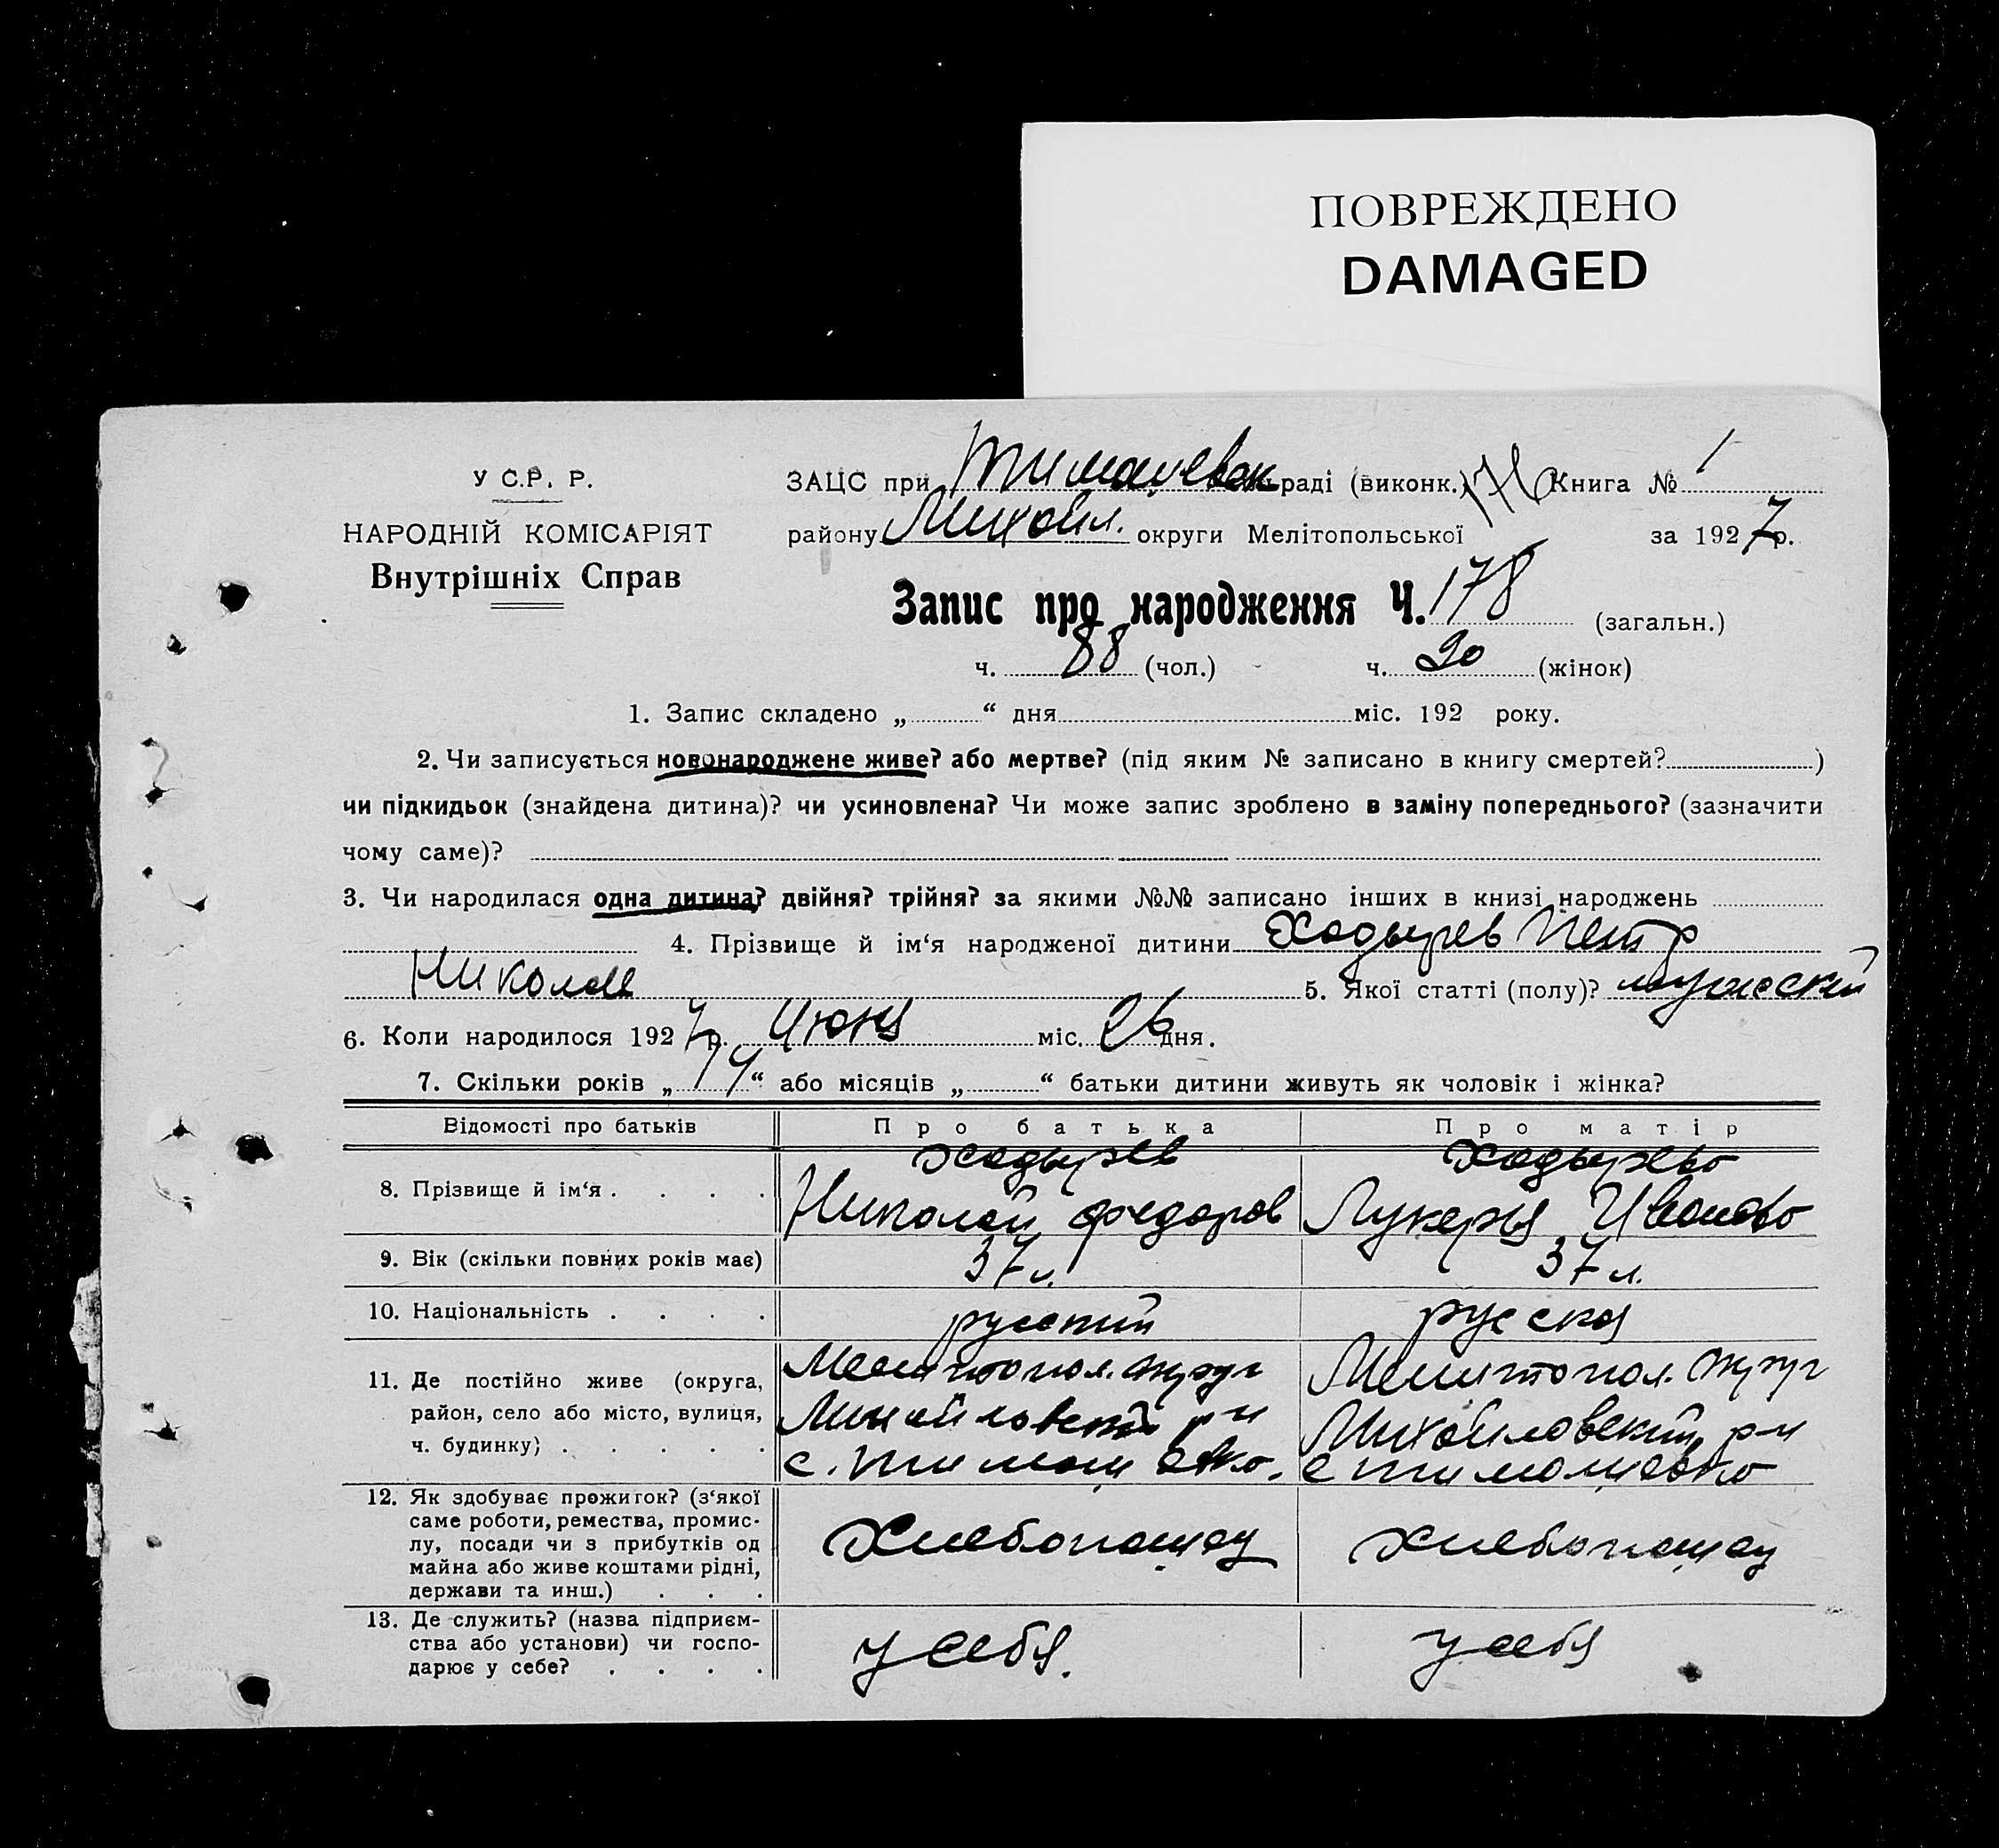 ПОВРЕЖДЕНО
DAMAGED
У С.Р. Р.
НАРОДНІЙ КОМІСАРІЯТ
Внутрішніх Справ
ЗАЦС при Тимашевск раді (виконк.) 176 Книга № 1
району Михайл. округи Мелітопольської за 1927 р.
Запис про народження Ч. 178 (загальн.)
ч. 88 (чол.) ч. 90 (жінок)
1. Запис складено „ “ дня міс. 192 року.
2. Чи записується новонароджене живе? або мертве? (під яким № записано в книгу смертей? )
чи підкидьок (знайдена дитина)? чи усиновлена? Чи може запис зроблено в заміну попереднього? (зазначити
чому саме)?
3. Чи народилася одна дитина? двійня? трійня? за якими №№ записано інших в книзі народжень
4. Прізвище й ім‘я народженої дитини Ходырев Петр
Николае 5. Якої статті (полу)? мужский
6. Коли народилося 1927 р. Июня міс. 26 дня.
7. Скільки років „ 14 “ або місяців „ “ батьки дитини живуть як чоловік і жінка?
Відомості про батьків Про батька Про матір
8. Прізвище й ім‘я . . . . Ходырев Николай Федоров Ходырева Лукерия Иванова
9. Вік (скільки повних років має) 37 л. 37 л.
10. Національність . . . . русский русская
11. Де постійно живе (округа, Мелитопол. округ Мелитопол. округ
район, село або місто, вулиця, Михайловский р-н Михайловский р-н
ч. будинку) . . . . . с. Тимашевка. с Тимашевка
12. Як здобуває прожиток? (з‘якої
саме роботи, ремества, промис-
лу, посади чи з прибутків од Хлебопашец Хлебопашец
майна або живе коштами рідні,
держави та инш.) . . .
13. Де служить? (назва підприєм-
ства або установи) чи госпо- у себя. у себя
дарює у себе? . . . .